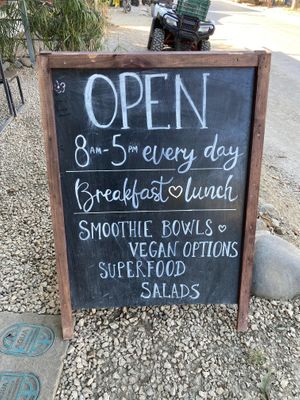 OPEN
8AM-5PM every day
Breakfast♡lunch
SMOOTHIE BOWLS ♡
VEGAN OPTIONS
SUPERFOOD
SALADS